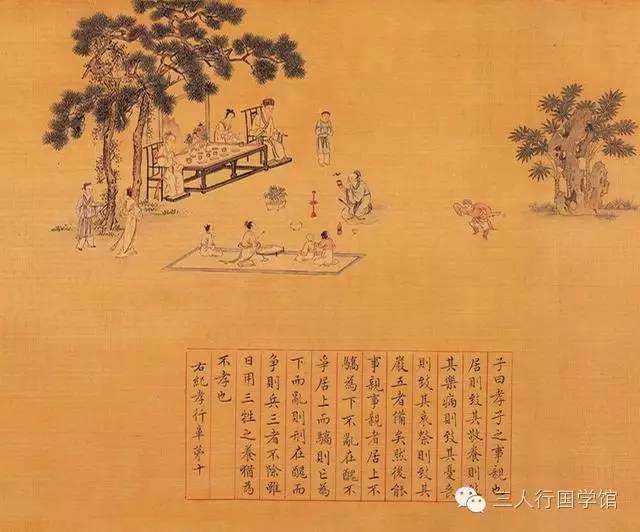 子曰孝子之事親也
居則致其敬養則致
其樂病則致其憂喪
則致其哀祭則致其
嚴五者備矣然後能
事親事親者居上不
驕為下不亂在醜不
爭居上而驕則亡為
下而亂則刑在醜而
爭則兵三者不除雖
日用三牲之養猶為
不孝也
右紀孝行章第十
三人行国学馆